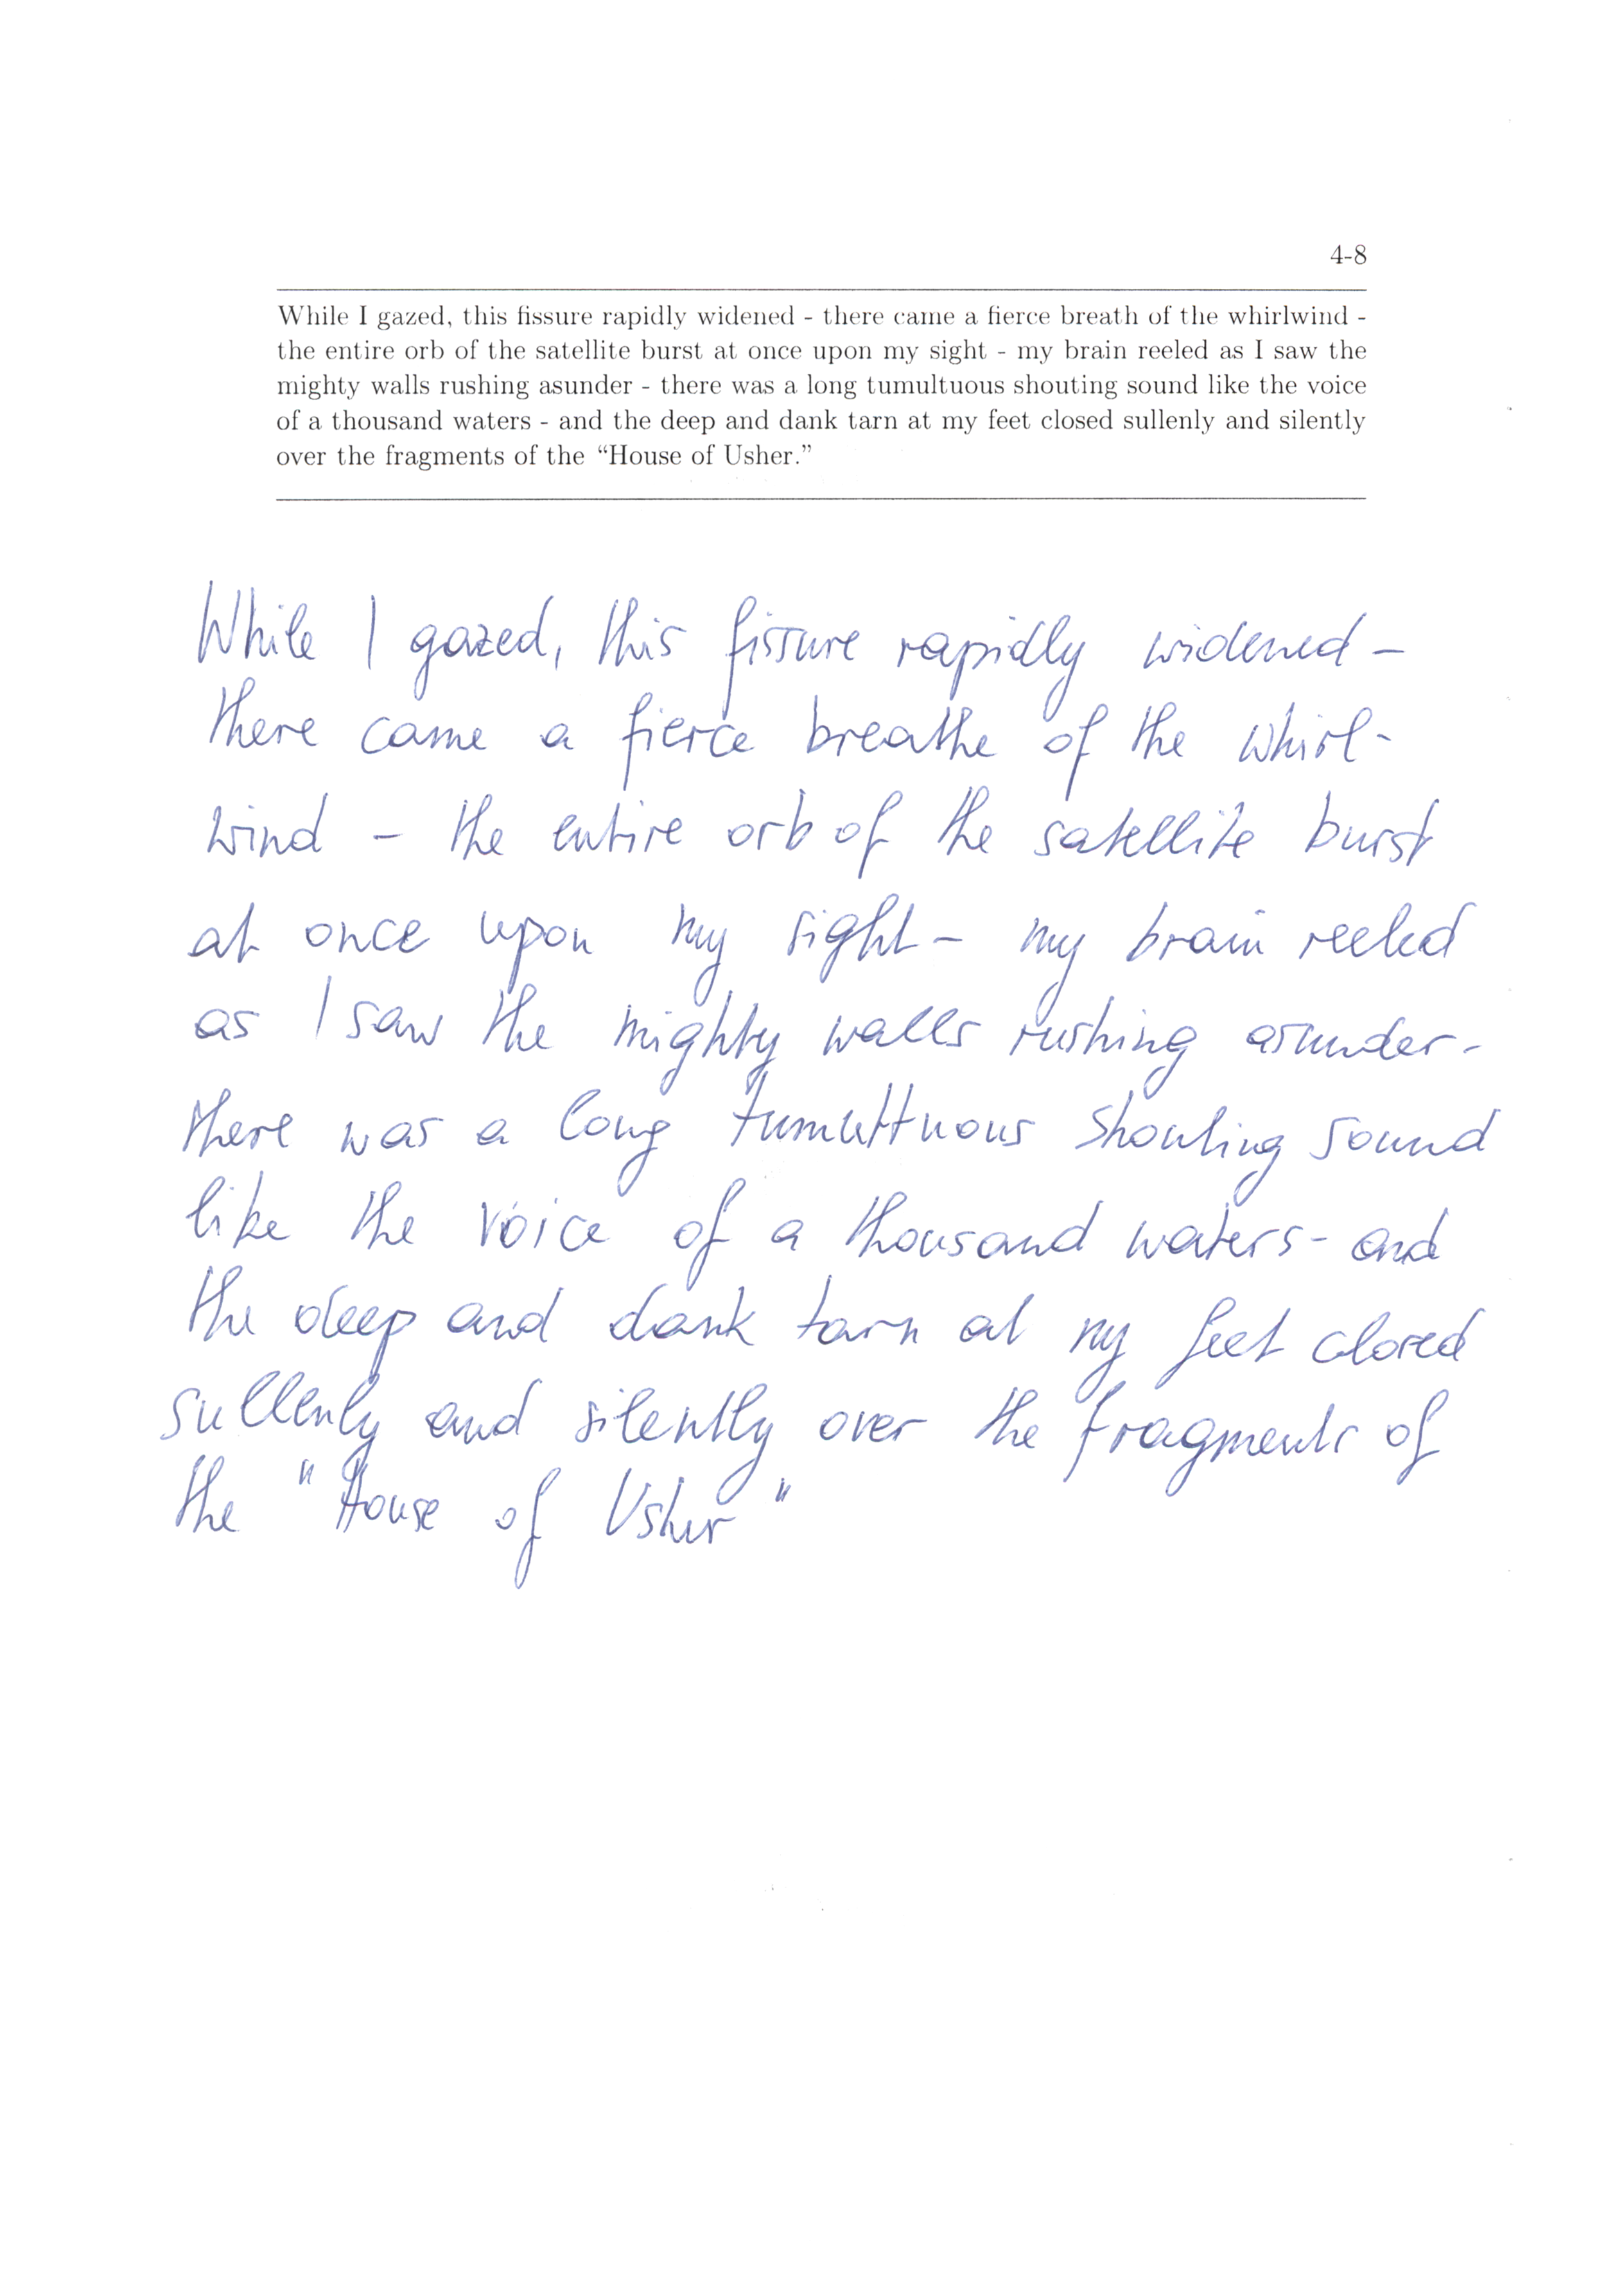 4-8
While I gazed, this fissure rapidly widened - there came a fierce breath of the whirlwind -
the entire orb of the satellite burst at once upon my sight - my brain reeled as I saw the
mighty walls rushing asunder - there was a long tumultuous shouting sound like the voice
of a thousand waters - and the deep and dank tarn at my feet closed sullenly and silently
over the fragments of the “House of Usher.”
While I gazed, this fissure rapidly widened -
there came a fierce breathe of the whirl-
wind - the entire orb of the satellite burst
at once upon my sight - my brain reeled
as I saw the mighty walls rushing asunder -
there was a long tumulttuous shouting sound
like the voice of a thousand waters - and
the deep and dank tarn at my feet closed
sullenly and silently over the fragments of
the "House of Usher"